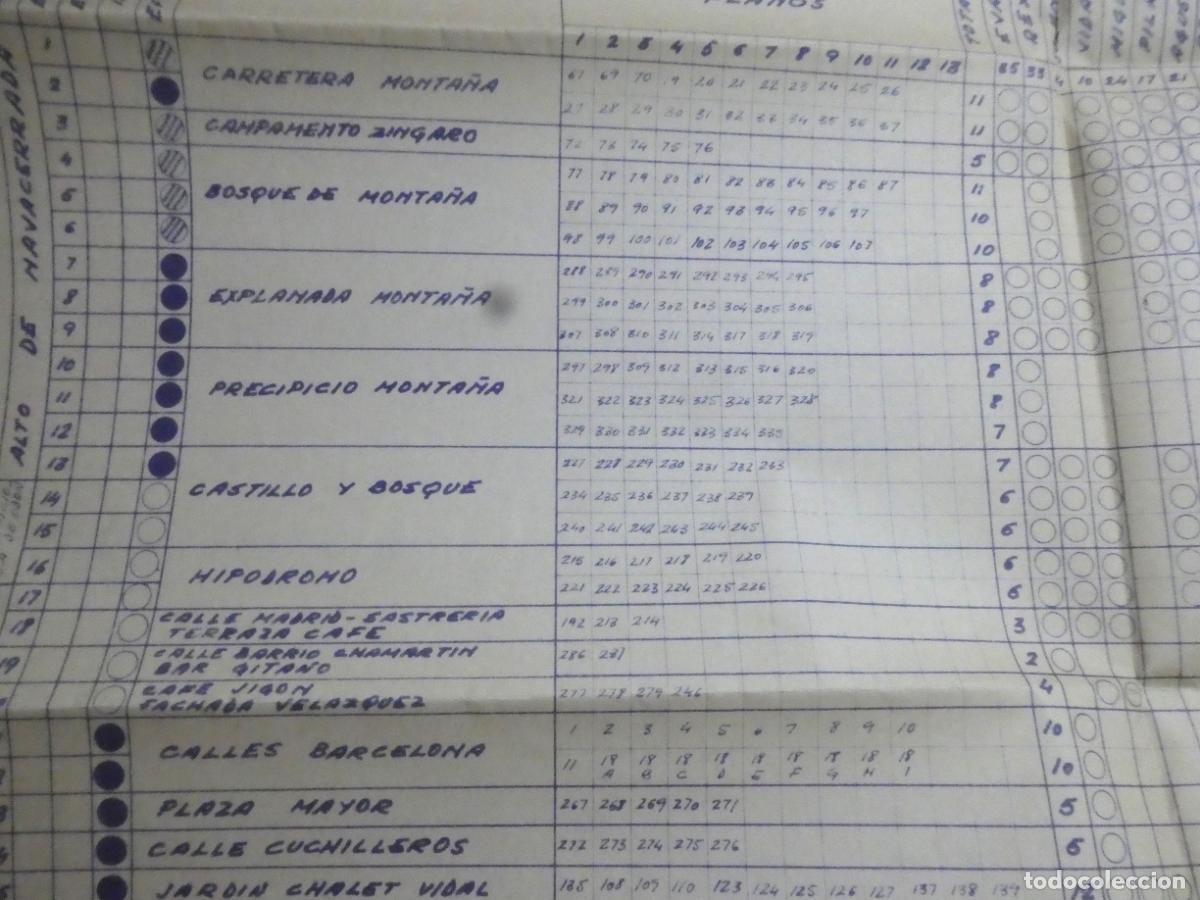 PLANOS
1 2 3 4 5 6 7 8 9 10 11 12 13
35 33 4 10 24 17 21
ALTO DE NAVACERRADA
1
2 CARRETERA MONTAÑA 67 69 70 19 20 21 22 23 24 25 26 11
3 27 28 29 30 31 32 33 34 35 36 37 11
CAMPAMENTO ZINGARO 72 73 74 75 76 5
4 77 78 79 80 81 82 83 84 85 86 87 11
5 BOSQUE DE MONTAÑA 88 89 90 91 92 93 94 95 96 97 10
6 98 99 100 101 102 103 104 105 106 107 10
7 288 289 290 291 292 293 294 295 8
8 EXPLANADA MONTAÑA 299 300 301 302 303 304 305 306 8
9 307 308 310 311 314 317 318 319 8
10 297 298 309 312 313 315 316 320 8
11 PRECIPICIO MONTAÑA 321 322 323 324 325 326 327 328 8
12 329 330 331 332 333 334 335 7
13 227 228 229 230 231 232 233 7
14 CASTILLO Y BOSQUE 234 235 236 237 238 239 6
15 240 241 242 243 244 245 6
16 215 216 217 218 219 220 6
17 HIPODROMO 221 222 223 224 225 226 6
18 CALLE MADRID - SASTRERIA
TERRAZA CAFE 192 213 214 3
19 CALLE BARRIO CHAMARTIN
BAR GITANO 286 287 2
CAFE JIGON
FACHADA VELAZQUEZ 277 278 279 246 4
CALLES BARCELONA 1 2 3 4 5 6 7 8 9 10 10
11 18 A 18 B 18 C 18 D 18 E 18 F 18 G 18 H 18 I 10
PLAZA MAYOR 267 268 269 270 271 5
CALLE CUCHILLEROS 272 273 274 275 276 5
JARDIN CHALET VIDAL 135 108 109 110 123 124 125 126 127 137 138 139 12
todocoleccion